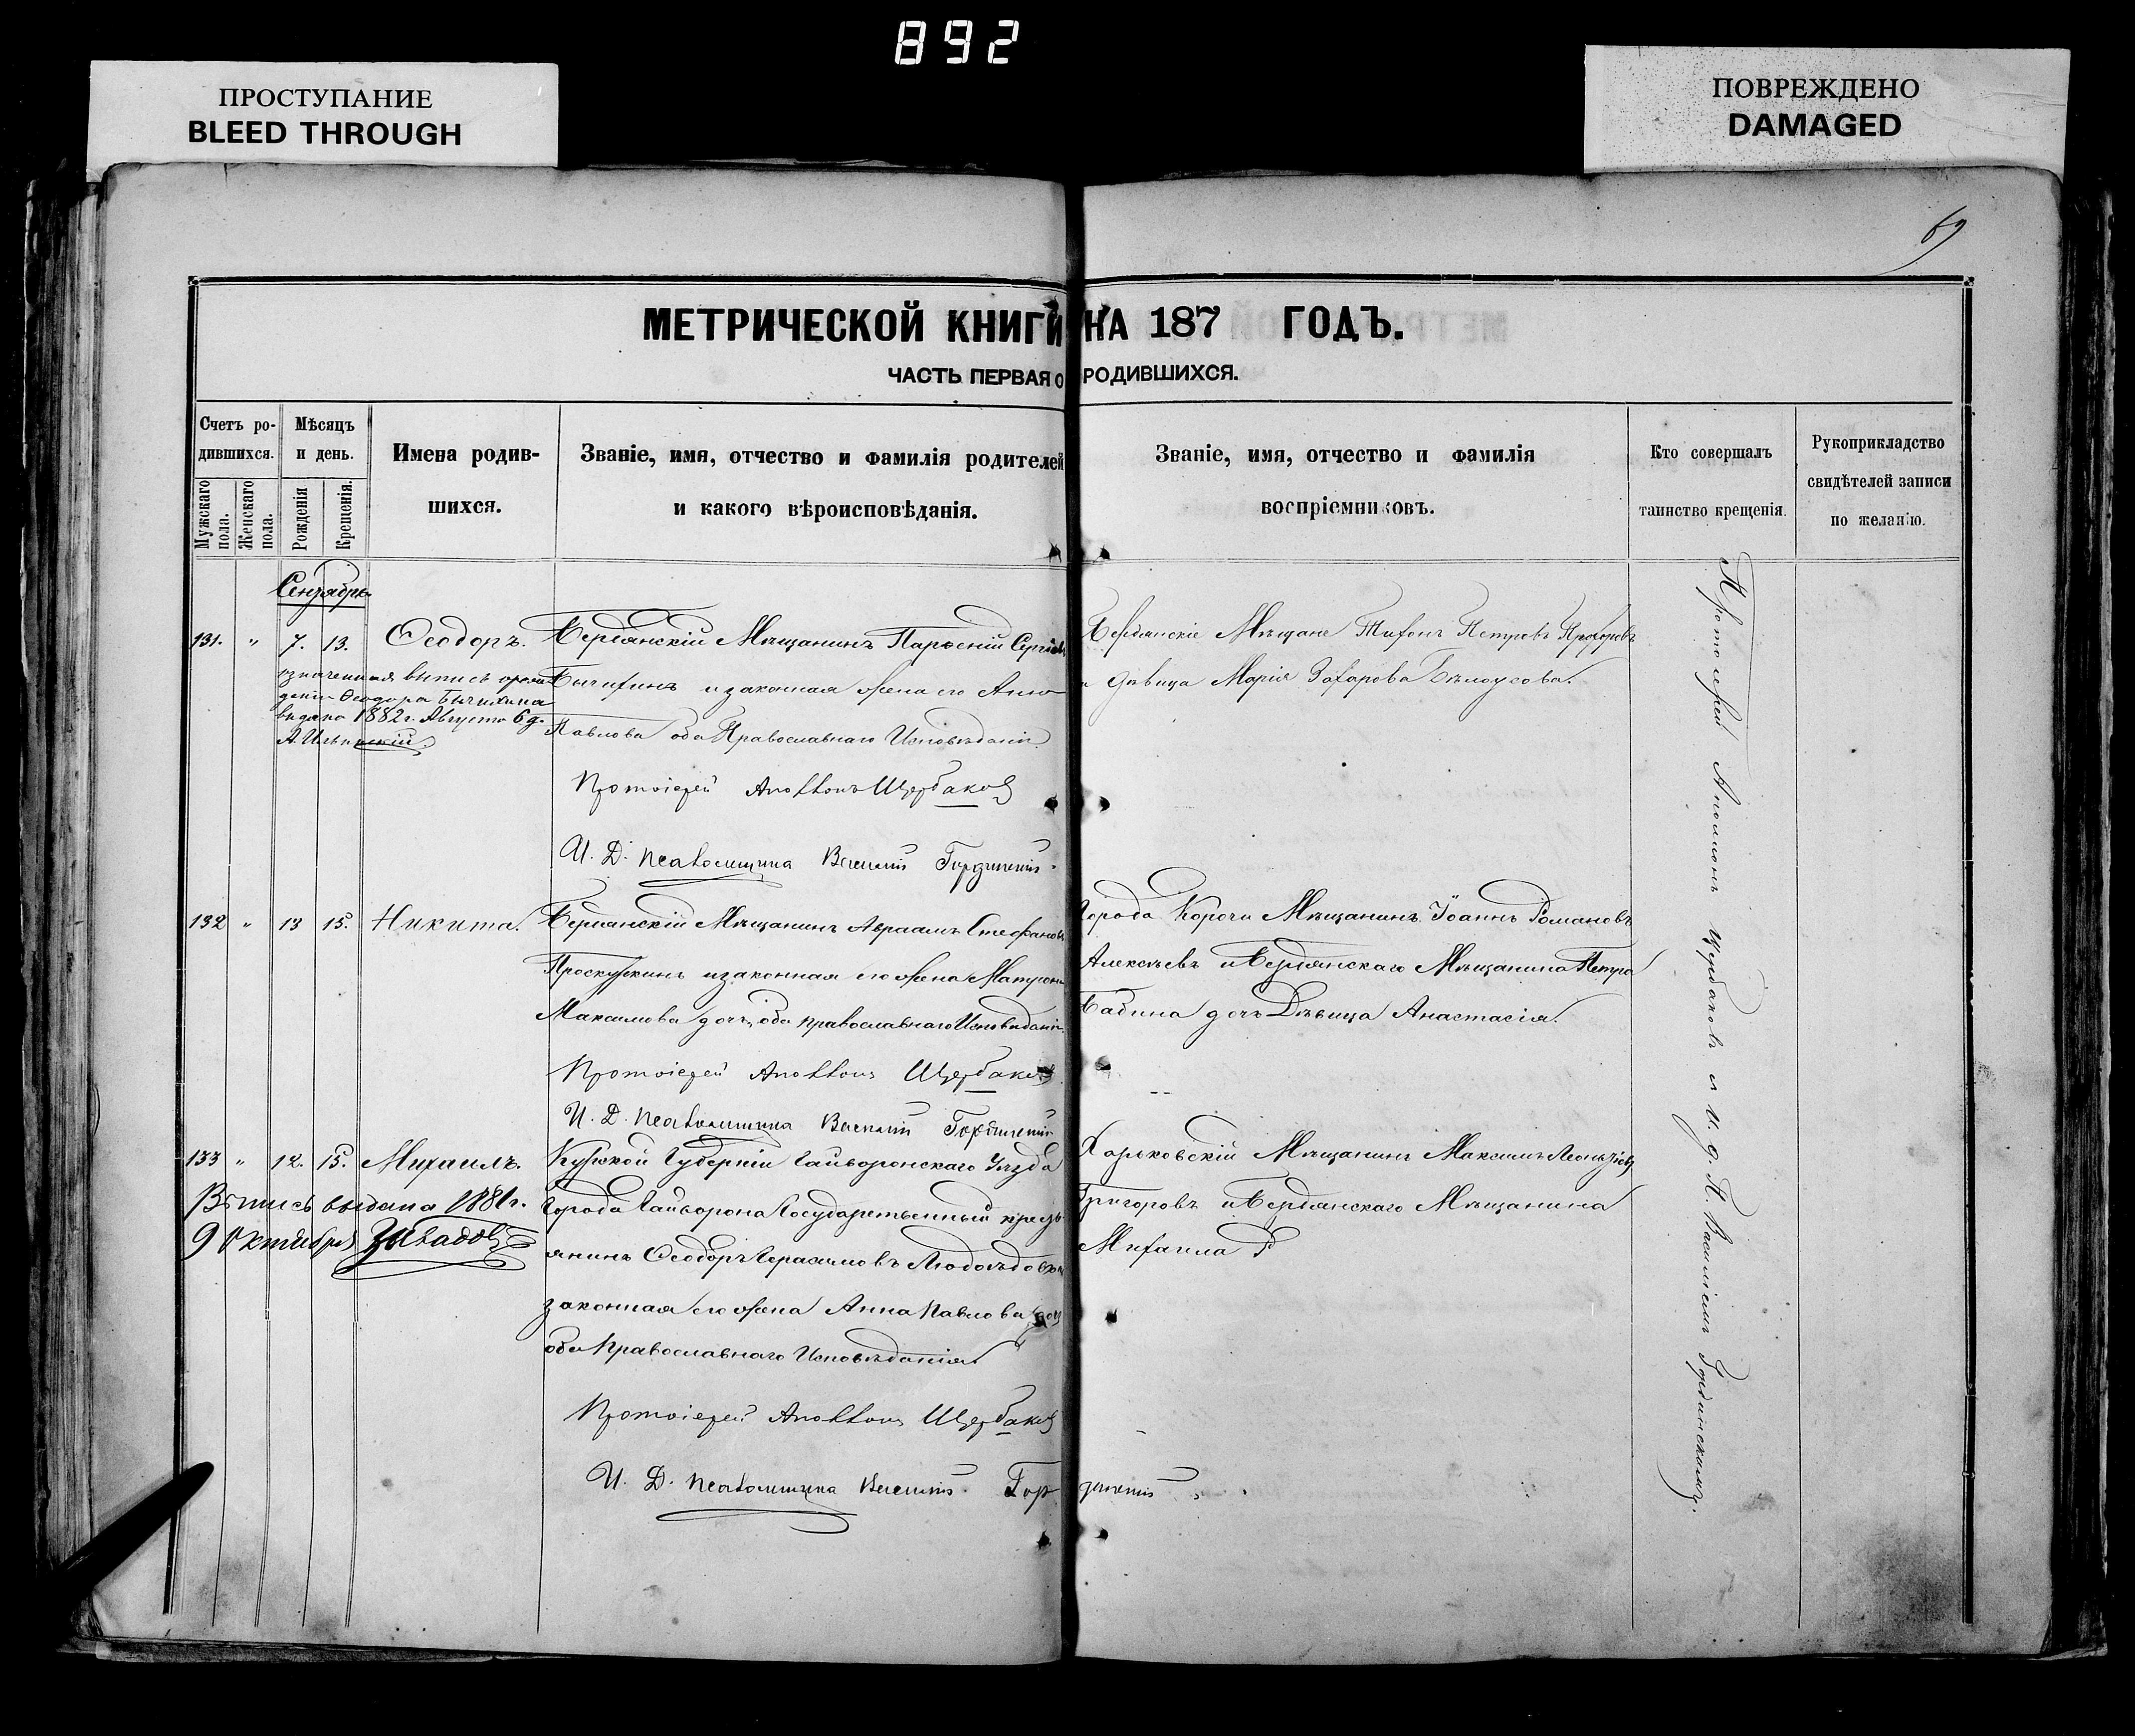 892
ПРОСТУПАНИЕ
BLEED THROUGH
ПОВРЕЖДЕНО
DAMAGED
69
МЕТРИЧЕСКОЙ КНИГИ НА 187 ГОДЪ.
ЧАСТЬ ПЕРВАЯ О РОДИВШИХСЯ.
Счетъ родившихся.
Мужскаго пола.
Женскаго пола.
Мѣсяцъ и день.
Рожденія
Крещенія.
Имена родив-
шихся.
Званіе, имя, отчество и фамилія родителей
и какого вѣроисповѣданія.
Званіе, имя, отчество и фамилія
воспріемниковъ.
Кто совершалъ
таинство крещенія.
Рукоприкладство
свидѣтелей записи
по желанію.
Сентябрь
131. " 7. 13. Ѳеодоръ. Бердянскій Мѣщанинъ Парѳеній Сергіевъ
Бычихинъ и законная жена его Анна
Павлова оба Православнаго Исповѣданія.
выпись о рож
деніи Ѳеодора Бычихина
выдана 1882 г. Августа 6 д.
Бердянскіе Мѣщане Тихонъ Петровъ Прохоровъ
и дѣвица Марія Захарова Бѣлоусова.
Протоіерей Аполлонъ Щербаковъ
И. Д. Псаломщика Василій
132 " 13 15. Никита. Бердянскій Мѣщанинъ Авраамъ Стефановъ
Проскуркинъ и законная его жена Матрона
Максимова дочь, оба православнаго Исповѣданія.
Города Корочи Мѣщанинъ Іоаннъ Романовъ
Алексѣевъ и Бердянскаго Мѣщанина Петра
Бабина дочь Дѣвица Анастасія.
Протоіерей Аполлонъ Щербаковъ
И. Д. Псаломщика Василій
133 " 12. 15. Михаилъ. Курской Губерніи Уѣзда
Города Государственный кресть
янинъ Ѳеодоръ Герасимовъ
законная его жена Анна Павлова дочь
оба Православнаго Исповѣданія
Выпись выдана 1881 г.
9 Октября
Харьковскій Мѣщанинъ Максимъ Леонтіевъ
Григоровъ и Бердянскаго Мѣщанина
Михаила
Протоіерей Аполлонъ Щербаковъ
И. Д. Псаломщика Василій
Протоіерей Аполлонъ Щербаковъ и И. д. П. Василіемъ